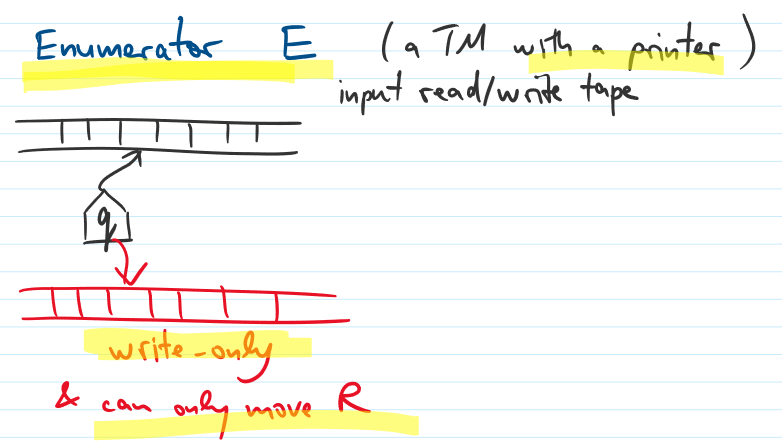 Enumerator E (a TM with a printer)
input read/write tape
q
write-only
& can only move R